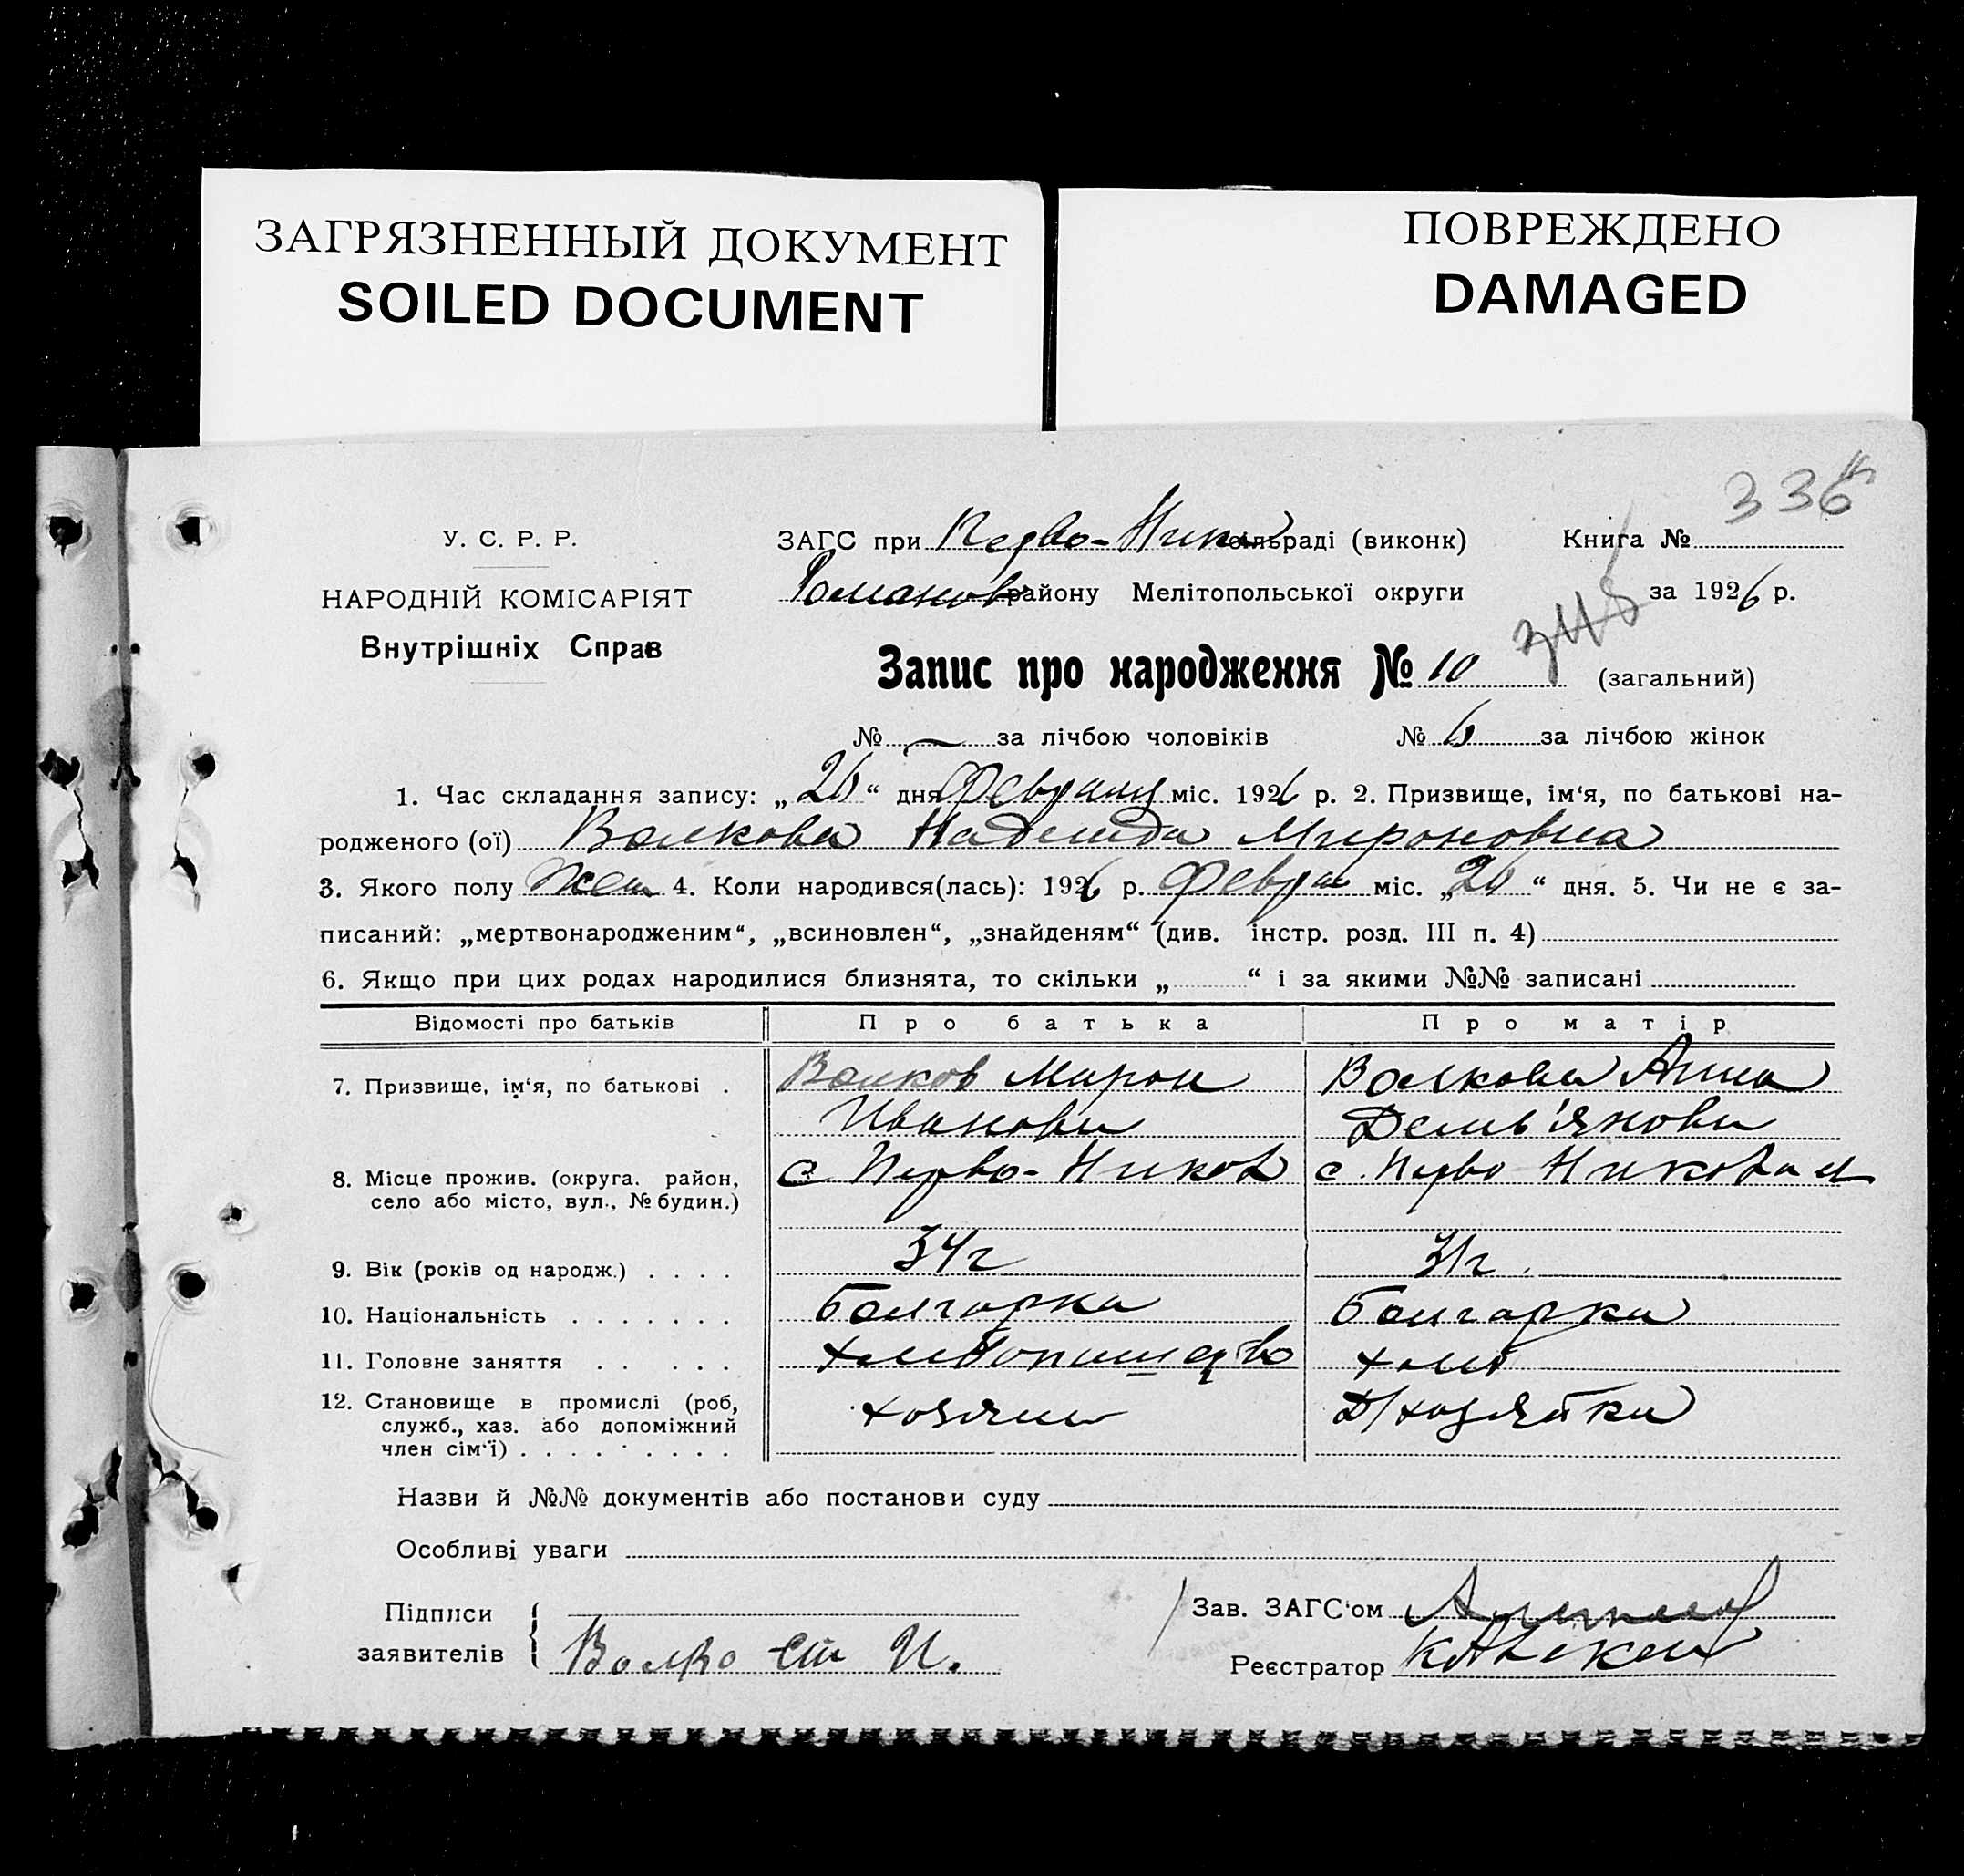 ЗАГРЯЗНЕННЫЙ ДОКУМЕНТ
SOILED DOCUMENT
ПОВРЕЖДЕНО
DAMAGED
336
У. С. Р. Р.
НАРОДНІЙ КОМІСАРІЯТ
Внутрішніх Справ
ЗАГС при Перво-Никол сільраді (виконк) Книга №
Романов району Мелітопольської округи за 1926 р.
Запис про народження № 10 (загальний)
№ — за лічбою чоловіків № 6 за лічбою жінок
1. Час складання запису: „26“ дня Февраля міс. 1926 р. 2. Призвище, ім‘я, по батькові на-
родженого (ої) Волкова Надежда Мироновна
3. Якого полу жен 4. Коли народився(лась): 1926 р. Феврал міс. „26“ дня. 5. Чи не є за-
писаний: „мертвонародженим“, „всиновлен“, „знайденям“ (див. інстр. розд. III п. 4)
6. Якщо при цих родах народилися близнята, то скільки „ “ і за якими №№ записані
Відомості про батьків Про батька Про матір
7. Призвище, ім‘я, по батькові . Волков Мирон Волкова Анна
Иванови Демь'янови
8. Місце прожив. (округа. район, с Перво-Никол с. Перво Николаев
село або місто, вул., № будин.)
9. Вік (років од народж.) . . . . 34г 31г.
10. Національність . . . . . . . Болгарка Болгарка
11. Головне заняття . . . . . Хлебопашество хлеб
12. Становище в промислі (роб, хозяин Д/хозяйка
служб., хаз. або допоміжний
член сім‘ї) . . . . . . . .
Назви й №№ документів або постанови суду
Особливі уваги
Підписи
заявителів
Зав. ЗАГС‘ом
Реєстратор